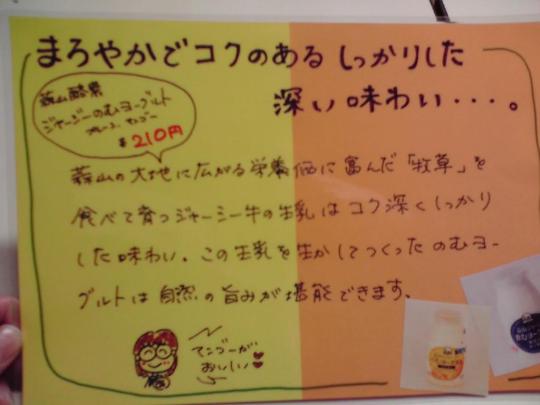 まろやかでコクのあるしっかりした
深い味わい・・・。
蒜山酪農
ジャージーのむヨーグルト
プレーン マンゴー
¥210円
蒜山の大地に広がる栄養価に富んだ「牧草」を
食べて育つジャージー牛の生乳はコク深くしっかり
した味わい。この生乳を生かしてつくったのむヨー
グルトは自然の旨みが堪能できます。
マンゴーが
おいしい♥